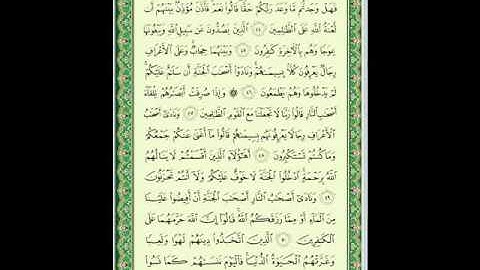 فَهَلْ وَجَدتُّم مَّا وَعَدَ رَبُّكُمْ حَقًّا قَالُوا۟ نَعَمْ فَأَذَّنَ مُؤَذِّنٌۢ بَيْنَهُمْ أَن
لَّعْنَةُ ٱللَّهِ عَلَى ٱلظَّـٰلِمِينَ ٤٤ ٱلَّذِينَ يَصُدُّونَ عَن سَبِيلِ ٱللَّهِ وَيَبْغُونَهَا
عِوَجًا وَهُم بِٱلْـَٔاخِرَةِ كَـٰفِرُونَ ٤٥ وَبَيْنَهُمَا حِجَابٌ وَعَلَى ٱلْأَعْرَافِ
رِجَالٌ يَعْرِفُونَ كُلًّۢا بِسِيمَىٰهُمْ وَنَادَوْا۟ أَصْحَـٰبَ ٱلْجَنَّةِ أَن سَلَـٰمٌ عَلَيْكُمْ
لَمْ يَدْخُلُوهَا وَهُمْ يَطْمَعُونَ ٤٦ ۞ وَإِذَا صُرِفَتْ أَبْصَـٰرُهُمْ تِلْقَآءَ
أَصْحَـٰبِ ٱلنَّارِ قَالُوا۟ رَبَّنَا لَا تَجْعَلْنَا مَعَ ٱلْقَوْمِ ٱلظَّـٰلِمِينَ ٤٧ وَنَادَىٰٓ أَصْحَـٰبُ
ٱلْأَعْرَافِ رِجَالًا يَعْرِفُونَهُم بِسِيمَىٰهُمْ قَالُوا۟ مَآ أَغْنَىٰ عَنكُمْ جَمْعُكُمْ
وَمَا كُنتُمْ تَسْتَكْبِرُونَ ٤٨ أَهَـٰٓؤُلَآءِ ٱلَّذِينَ أَقْسَمْتُمْ لَا يَنَالُهُمُ
ٱللَّهُ بِرَحْمَةٍ ٱدْخُلُوا۟ ٱلْجَنَّةَ لَا خَوْفٌ عَلَيْكُمْ وَلَآ أَنتُمْ تَحْزَنُونَ
٤٩ وَنَادَىٰٓ أَصْحَـٰبُ ٱلنَّارِ أَصْحَـٰبَ ٱلْجَنَّةِ أَنْ أَفِيضُوا۟ عَلَيْنَا
مِنَ ٱلْمَآءِ أَوْ مِمَّا رَزَقَكُمُ ٱللَّهُ قَالُوٓا۟ إِنَّ ٱللَّهَ حَرَّمَهُمَا عَلَى
ٱلْكَـٰفِرِينَ ٥٠ ٱلَّذِينَ ٱتَّخَذُوا۟ دِينَهُمْ لَهْوًا وَلَعِبًا
وَغَرَّتْهُمُ ٱلْحَيَوٰةُ ٱلدُّنْيَا فَٱلْيَوْمَ نَنسَىٰهُمْ كَمَا نَسُوا۟